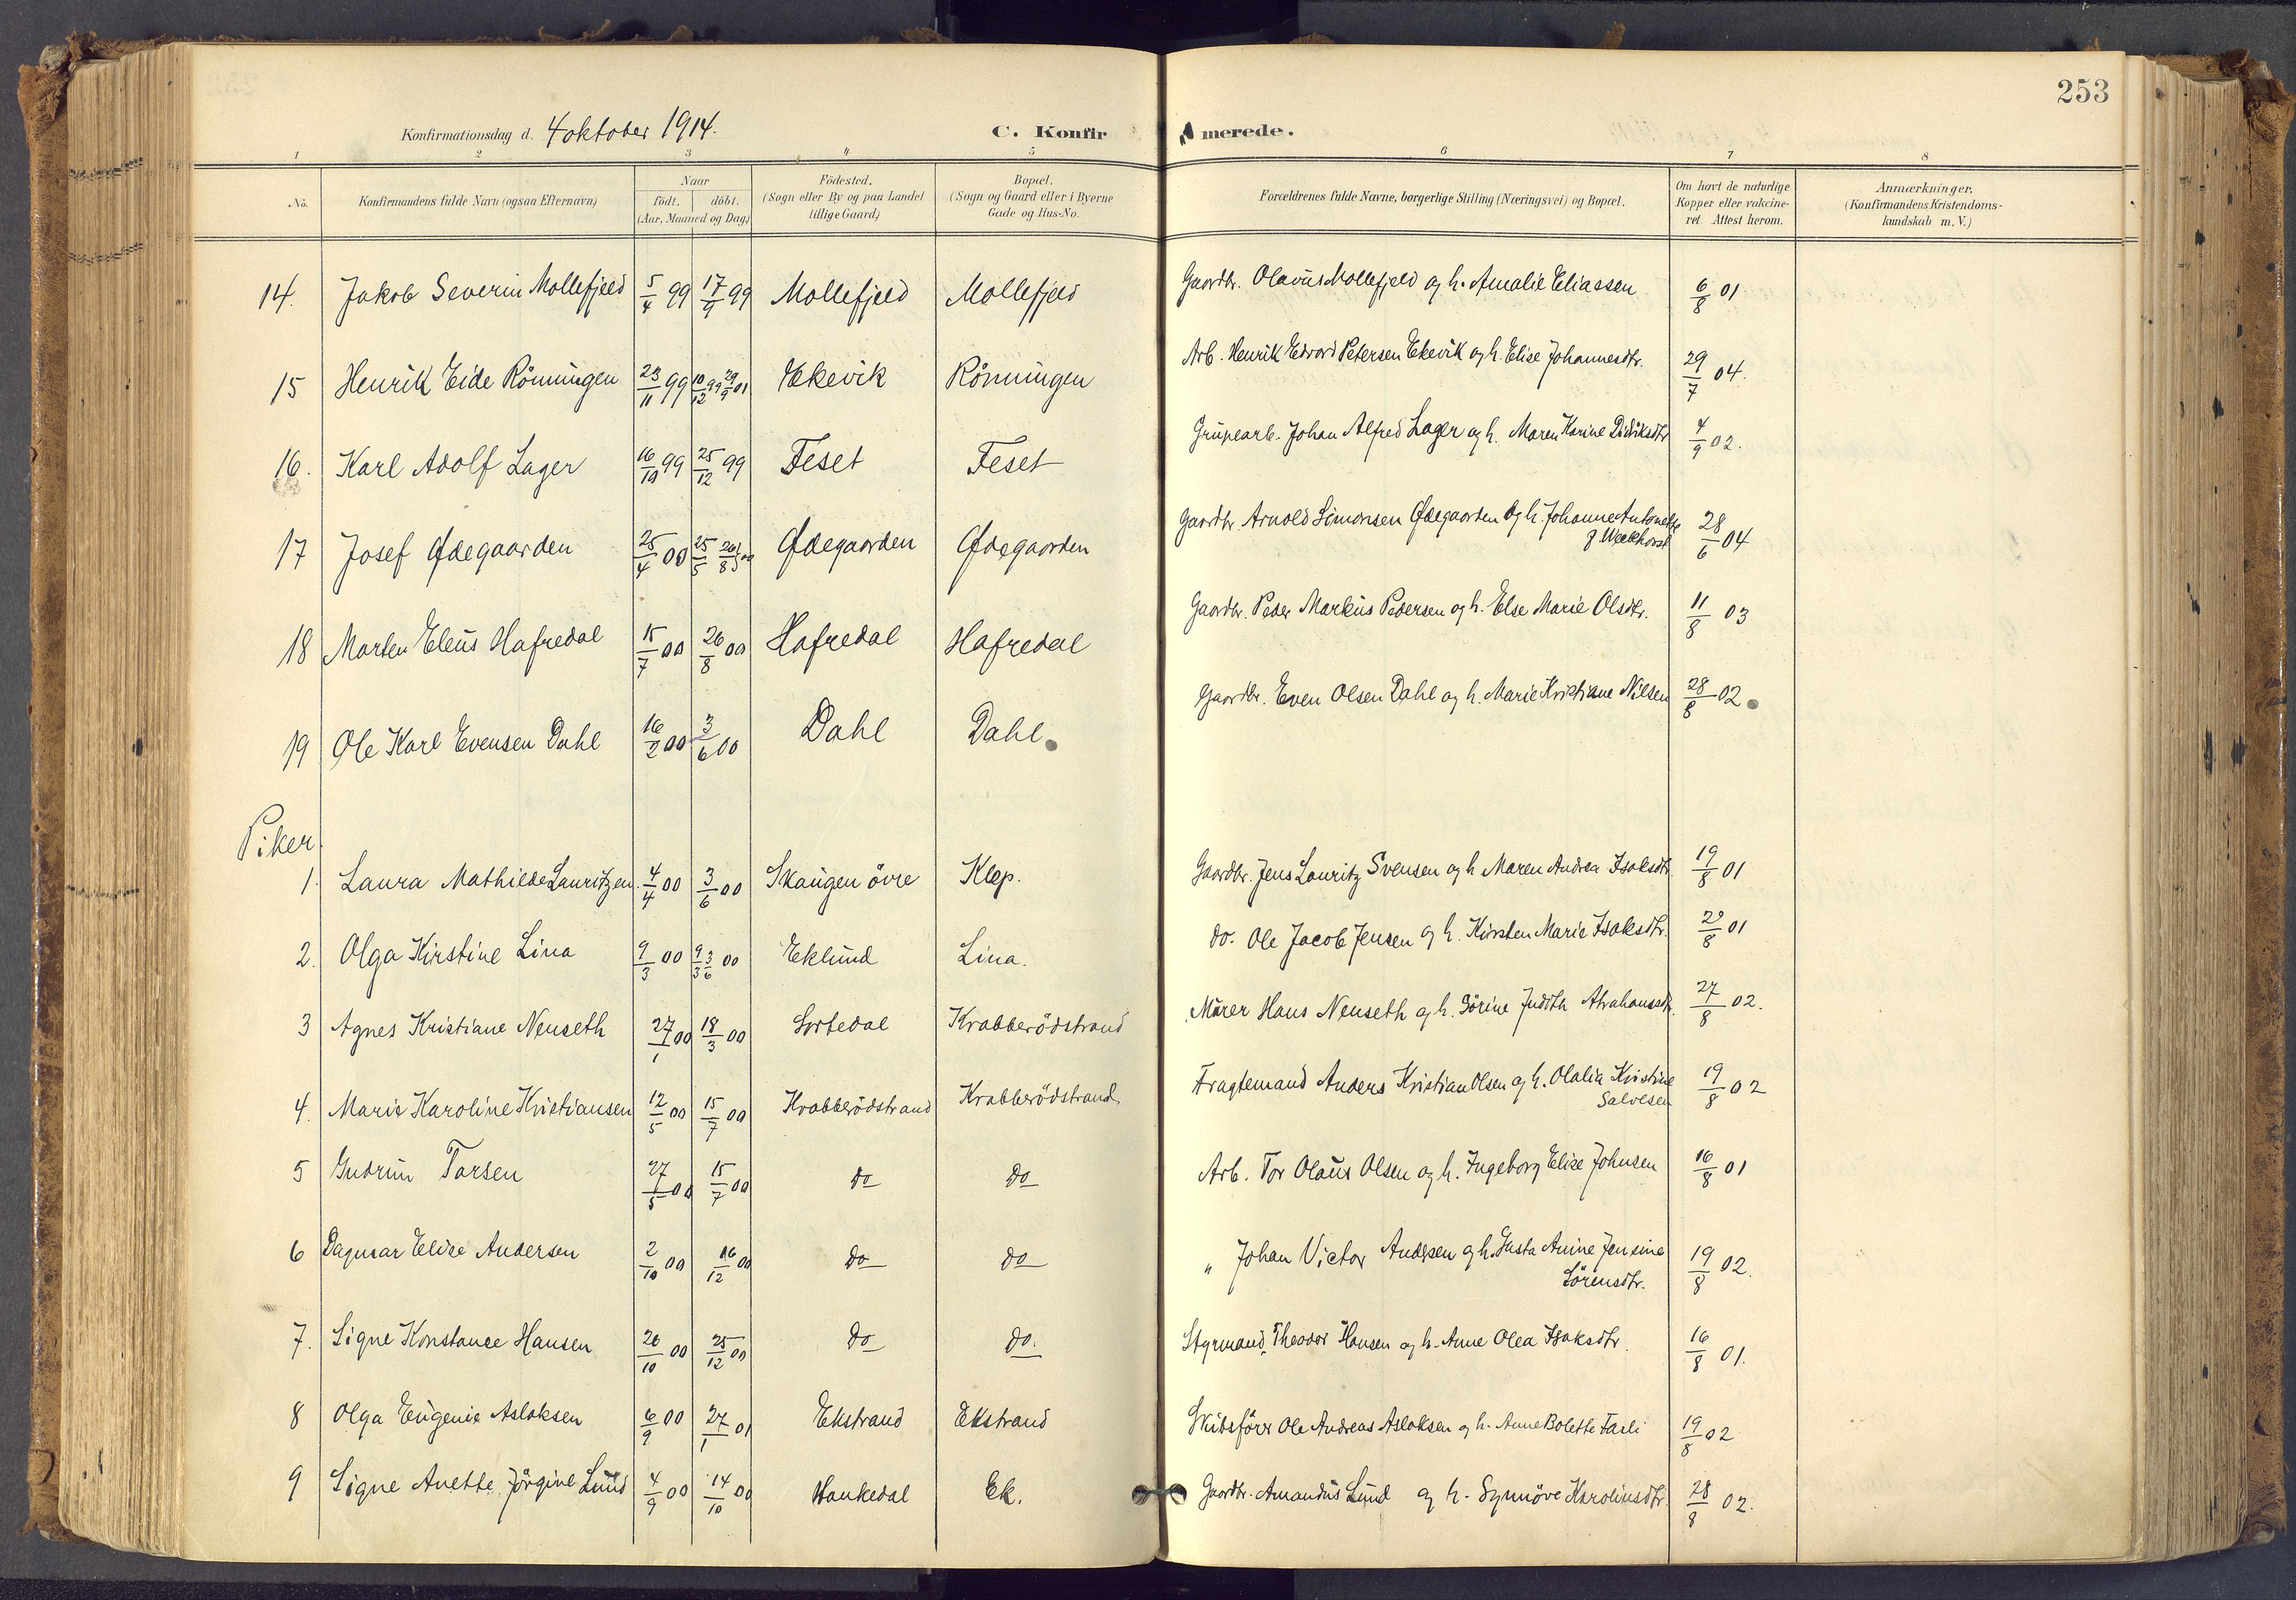 253
Konfirmationsdag d. 4 oktober 1914.
C. Konfirmerede.
1 2 3 4 5 6 7 8
No.
Konfirmandens fulde Navn (ogsaa Efternavn)
Naar
födt. döbt.
(Aar, Maaned og Dag)
Födested.
(Sogn eller By og paa Landet
tillige Gaard)
Bopæl.
(Sogn og Gaard eller i Byerne
Gade og Hus-No.
Forældrenes fulde Navne, borgerlige Stilling (Næringsvei) og Bopæl.
Om havt de naturlige
Kopper eller vakcine-
ret. Attest herom.
Anmærkninger.
(Konfirmandens Kristendoms-
kundskab m. V.)
14. Jakob Severin Mollefjeld 5/4 99 17/9 99 Mollefjeld Mollefjeld Gaardbr. Olavus Mollefjeld og h. Amalie Eliassen 6/8 01
15 Henrik Eide Rönningen 23/11 99 10/12 99 29/9 01 Ekevik Rönningen Arb. Henrik Edvard Petersen Ekevik og h. Elise Johannesdtr. 29/7 04.
16. Karl Adolf Lager 16/10 99 25/12 99 Feset Feset Grubearb. Johan Alfred Lager og h. Maren Karine Didriksdtr 4/9 02.
17 Josef Ødegaarden 25/4 00 25/5 26/8 00 Ødegaarden Ødegaarden Gaardbr. Arnold Simonsen Ødegaarden og h. Johanne Antonette 28/6 04
18 Marten Eleus Hafredal 15/7 00 26/8 00 Hafredal Hafredal Gaardbr. Peder Markus Pedersen og h. Else Marie Olsdtr. 11/8 03
19 Ole Karl Evensen Dahl 16/2 00 3/6 00 Dahl Dahl. Gaardbr. Even Olsen Dahl og h. Marie Kristiane Nilsen 28/8 02
Piker.
1. Laura Mathilde Lauritzen. 4/4 00 3/6 00 Skaugen övre Klep. Gaardbr. Jens Lauritz Svensen og h Maren Andrea Isaksdtr. 19/8 01
2. Olga Kirstine Lina 9/3 00 3/6 00 Eklund Lina. do. Ole Jacob Jensen og h. Kirsten Marie Isaksdtr. 29/8 01
3 Agnes Kristiane Neuseth 27/1 00 18/3 00 Sortedal Krabberödstrand Murer Hans Neuseth og h. Sörine Judith Abrahamsdtr. 27/8 02.
4. Marie Karoline Kristiansen 12/5 00 15/7 00 Krabberödstrand Krabberödstrand Fragtemand Anders Kristian Olsen og h. Olalia Kristine
Salvesen 19/8 02
5 Gudrun Torsen 27/5 00 15/7 00 do do Arb. Tor Olaus Olsen og h. Ingeborg Elise Johnsen 16/8 01
6 Dagmar Elise Andersen 2/10 00 16/12 00 do do " Johan Victor Andersen og h. Gusta Anine Jensine
Sörensdtr. 19/8 02.
7. Signe Konstance Hansen 26/10 00 25/12 00 do do. Styrmand. Theodor Hansen og h. Anne Olea Isaksdtr. 16/8 01.
8 Olga Eugenie Aslaksen 6/9 00 27/1 01 Ekstrand Ekstrand Skibsförer Ole Andreas Aslaksen og h. Anne Bolette Tarli 19/8 02
9 Signe Anette Jörgine Lund 4/9 00 14/10 00 Hankedal Ek. Gaardbr. Amandus Lund og h. Synnöve Karolinsdtr. 28/8 02.